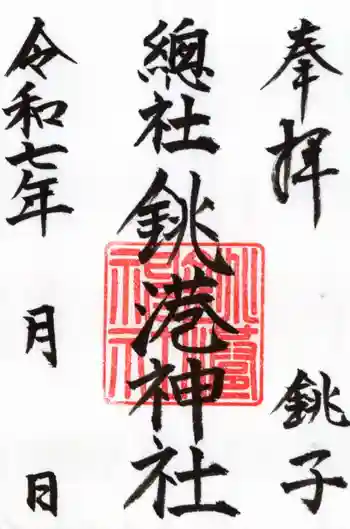 奉拝　銚子
總社　銚港神社
令和七年　月　日